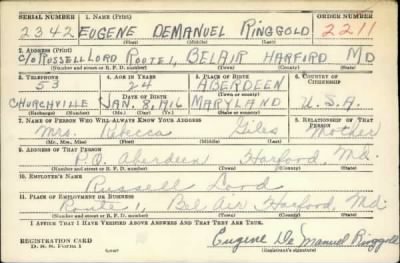 SERIAL NUMBER 1. NAME (Print) ORDER NUMBER
2342 EUGENE DEMANUEL RINGGOLD 2211
(First) (Middle) (Last)
2. ADDRESS (Print)
C/O RUSSELL LORD ROUTE 1, BELAIR HARFORD MD
(Number and street or R. F. D. number) (Town) (County) (State)
3. TELEPHONE 4. AGE IN YEARS 5. PLACE OF BIRTH 6. COUNTRY OF CITIZENSHIP
53 24 ABERDEEN
DATE OF BIRTH (Town or county)
CHURCHVILLE JAN. 8, 1916 MARYLAND U.S.A.
(Exchange) (Number) (Mo.) (Day) (Yr.) (State or country)
7. NAME OF PERSON WHO WILL ALWAYS KNOW YOUR ADDRESS 8. RELATIONSHIP OF THAT PERSON
Mrs. Rebecca Giles Mother
(Mr., Mrs., Miss) (First) (Middle) (Last)
9. ADDRESS OF THAT PERSON
P.O. Aberdeen Harford, Md.
(Number and street or R. F. D. number) (Town) (County) (State)
10. EMPLOYER'S NAME
Russell Lord
11. PLACE OF EMPLOYMENT OR BUSINESS
Route 1, Bel Air, Harford, Md.
(Number and street or R. F. D. number) (Town) (County) (State)
I AFFIRM THAT I HAVE VERIFIED ABOVE ANSWERS AND THAT THEY ARE TRUE.
REGISTRATION CARD
D. S. S. Form 1 Eugene De Manuel Ringgold